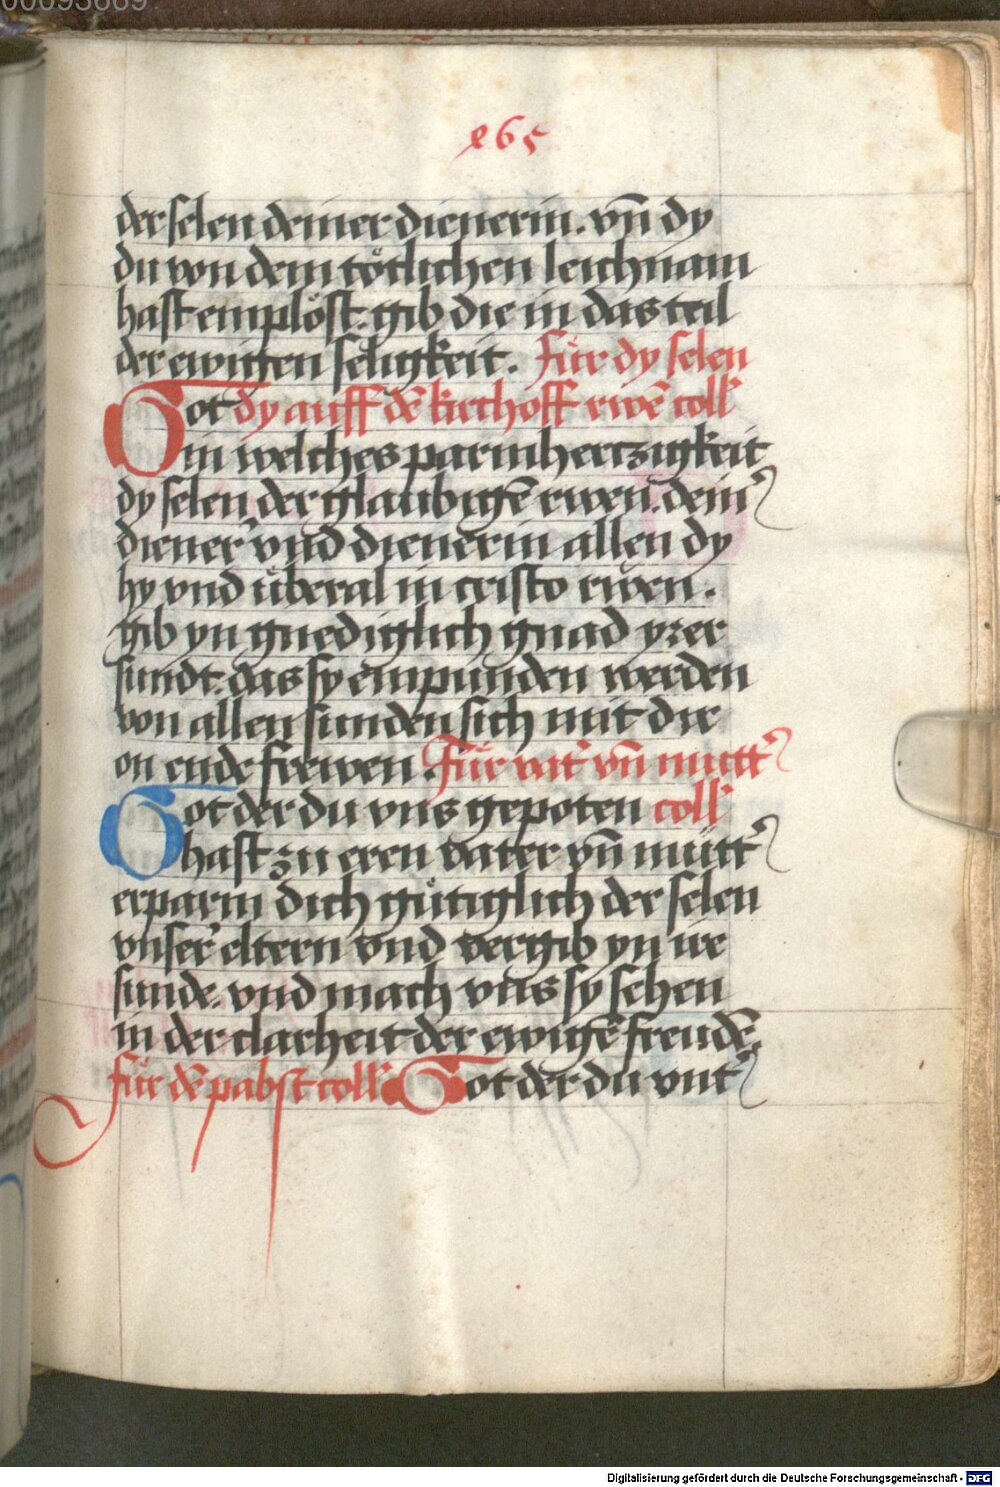 00093669
265
der selen deiner dienerin. vn̄ dy
du von dem tötlichen leichnam
hast emplöst. gib die in das teil
der ewigen seligkeit. für dy selen
Got dy auff dē kirchoff rwē coll'
in welches parmhertzigkeit
dy selen der glaubigē rwen. dein'
diener vnd dienerin allen dy
hy vnd überal in cristo rwen.
gib yn gnediglich gnad yrer
sundt. das sy empunden werden
von allen sunden sich mit dir
on ende frewen. für vat' vn̄ mutt'
Got der du vns gepoten coll'
hast zu eren vater vn̄ mütt'
erparm dich gütiglich der selen
vnser eltern vnd vergib yn ire
sunde. vnd mach vns sy sehen
in der clarheit der ewigē freudē.
für dē pabst coll' Got der du vnt'
Digitalisierung gefördert durch die Deutsche Forschungsgemeinschaft - DFG